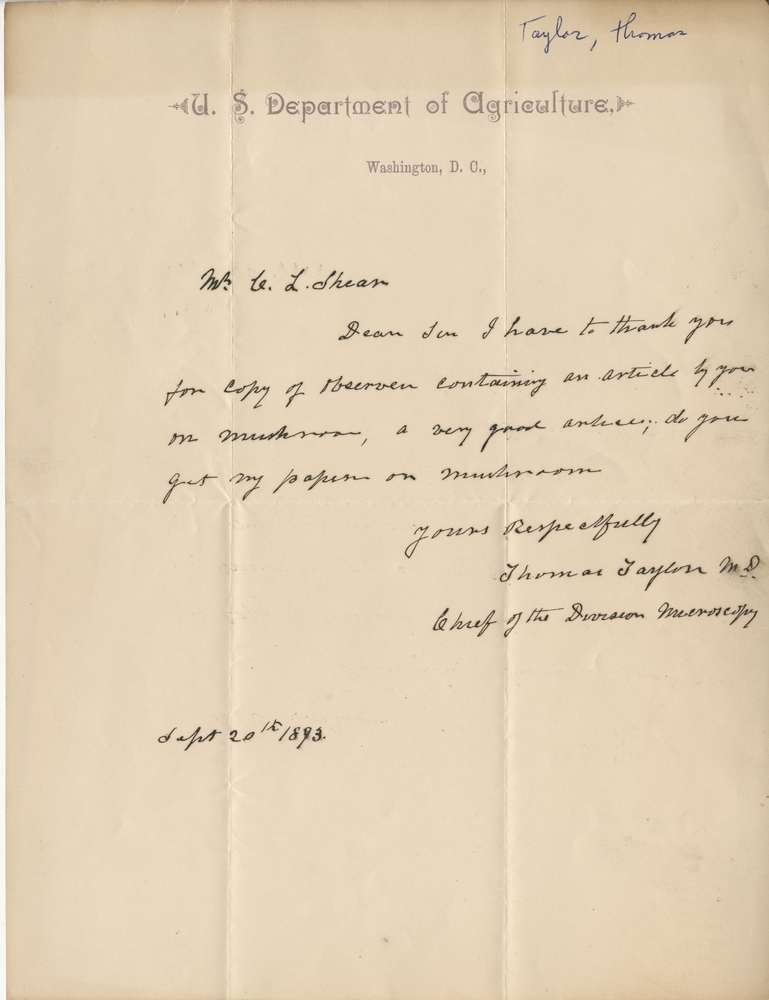 Taylor, Thomas
U. S. Department of Agriculture.
Washington, D. C.,
Mr. C. L. Shear
Dear Sir I have to thank you
for copy of Observer containing an article by you
on mushroom, a very good article; do you
get my papers on mushroom
Yours Respectfully
Thomas Taylor M.D.
Chief of the Division Microscopy
Sept 20th 1893.